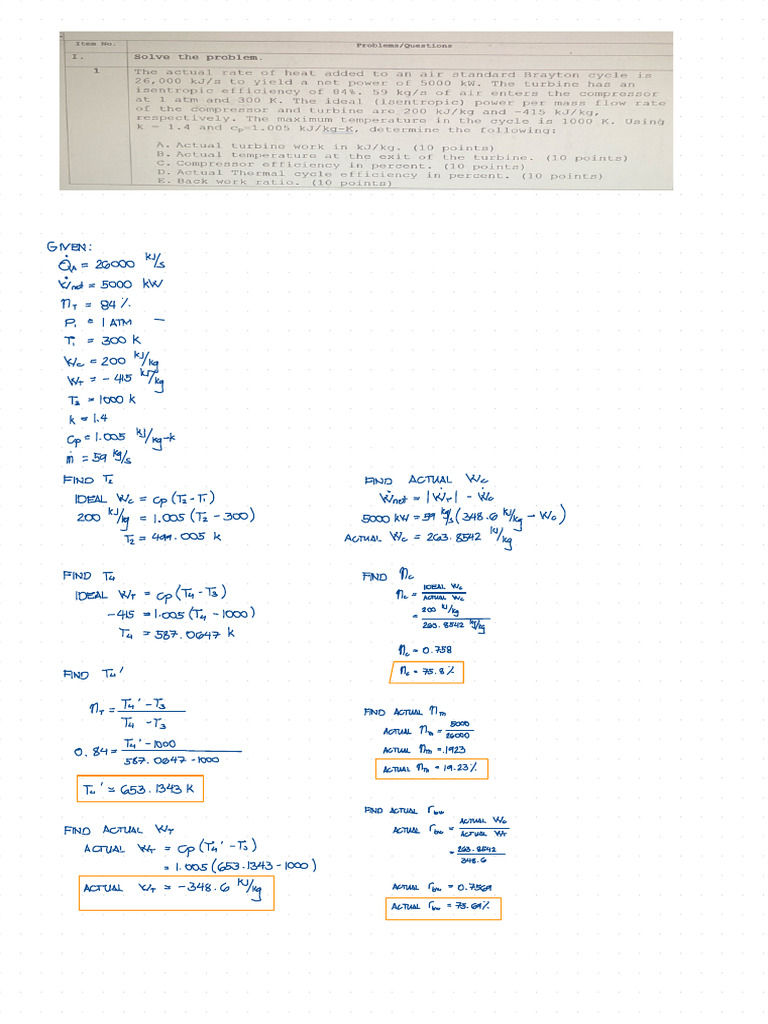 Item No.
Problems/Questions
I.
Solve the problem.
1
The actual rate of heat added to an air standard Brayton cycle is
26,000 kJ/s to yield a net power of 5000 kW. The turbine has an
isentropic efficiency of 84%. 59 kg/s of air enters the compressor
at 1 atm and 300 K. The ideal (isentropic) power per mass flow rate
of the compressor and turbine are 200 kJ/kg and -415 kJ/kg,
respectively. The maximum temperature in the cycle is 1000 K. Using
k = 1.4 and cp=1.005 kJ/kg-K, determine the following:
A. Actual turbine work in kJ/kg. (10 points)
B. Actual temperature at the exit of the turbine. (10 points)
C. Compressor efficiency in percent. (10 points)
D. Actual Thermal cycle efficiency in percent. (10 points)
E. Back work ratio. (10 points)
GIVEN:
Q̇A = 26000 kJ/s
Ẇnet = 5000 kW
ηT = 84 %
P1 = 1 ATM –
T1 = 300 K
Wc = 200 kJ/kg
WT = - 415 kJ/kg
T3 = 1000 K
k = 1.4
Cp = 1.005 kJ/kg-K
ṁ = 59 kg/s
FIND T2
IDEAL Wc = Cp (T2 - T1)
200 kJ/kg = 1.005 (T2 - 300)
T2 = 499.005 K
FIND T4
IDEAL WT = Cp (T4 - T3)
-415 = 1.005 (T4 - 1000)
T4 = 587.0647 K
FIND T4'
ηT = T4' - T3
T4 - T3
0.84 = T4' - 1000
587.0647 - 1000
T4' = 653.1343 K
FIND ACTUAL WT
ACTUAL WT = Cp (T4' - T3)
= 1.005 (653.1343 - 1000)
ACTUAL WT = -348.6 kJ/kg
FIND ACTUAL Wc
Ẇnet = |ẆT| - Ẇc
5000 kW = 59 kg/s (348.6 kJ/kg - Wc)
ACTUAL Wc = 263.8542 kJ/kg
FIND ηc
ηc = IDEAL Wc
ACTUAL Wc
= 200 kJ/kg
263.8542 kJ/kg
ηc = 0.758
ηc = 75.8 %
FIND ACTUAL ηTH
ACTUAL ηTH = 5000
26000
ACTUAL ηTH = .1923
ACTUAL ηTH = 19.23 %
FIND ACTUAL rbw
ACTUAL rbw = ACTUAL Wc
ACTUAL WT
= 263.8542
348.6
ACTUAL rbw = 0.7569
ACTUAL rbw = 75.69 %